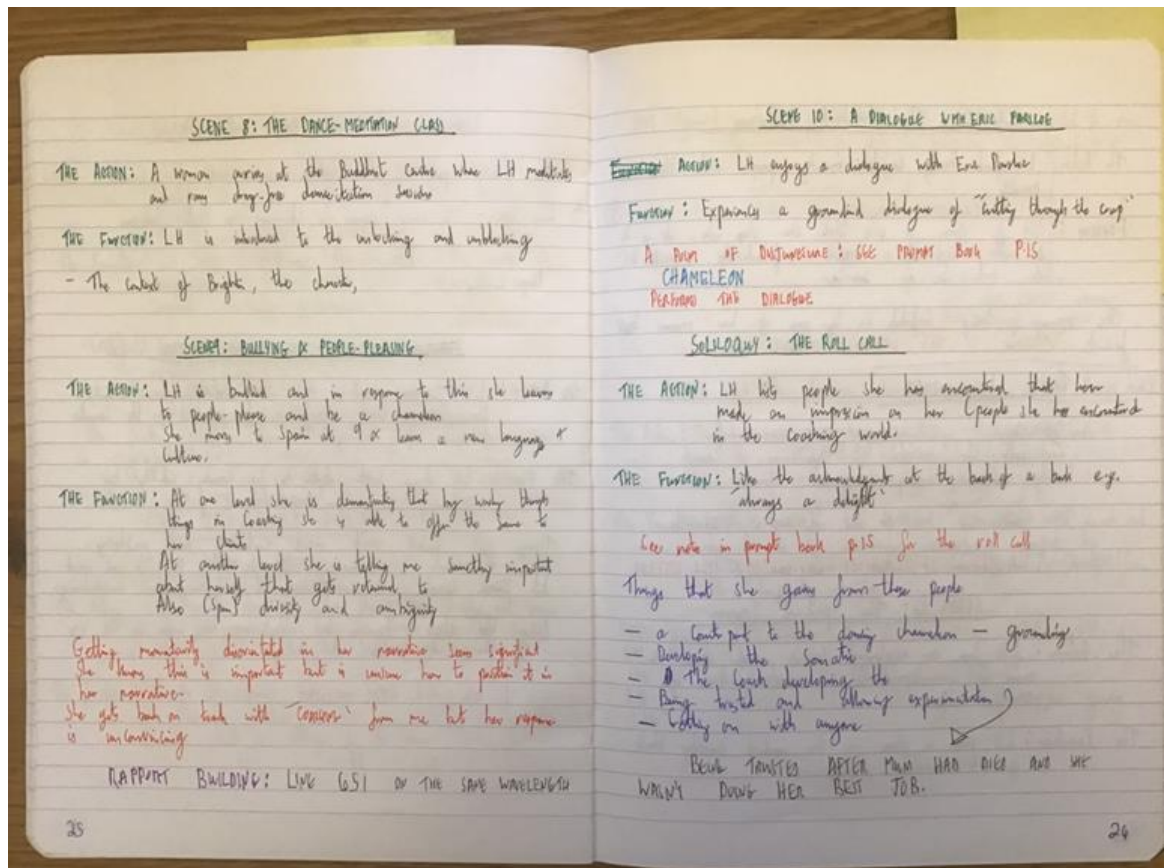 SCENE 8: THE DANCE-MEDITATION CLASS
THE ACTION: A woman arriving at the Buddhist centre where LH meditates
and runs drug-free dance sessions
THE FUNCTION: LH is introduced to the unlocking and unblocking
- The context of Brighton, the church,
SCENE 9: BULLYING & PEOPLE-PLEASING
THE ACTION: LH is bullied and in response to this she learns
to people-please and be a chameleon
She moves to Spain at 9 & learns a new language &
culture.
THE FUNCTION: At one level she is demonstrating that by working through
things in Coaching she is able to offer the same to
her clients
At another level she is telling me something important
about herself that gets returned to
Also (Spain) diversity and ambiguity
Getting momentarily disorientated in her narrative seems significant
She knows this is important but is unsure how to position it in
her narrative.
She gets back on track with from me but her response
is unconvincing
RAPPORT BUILDING: LINE 651 ON THE SAME WAVELENGTH
25
SCENE 10: A DIALOGUE WITH ERIC PARSLOE
ACTION: LH enjoys a dialogue with Eric Parsloe
FUNCTION: Experiences a grounded dialogue of "cutting through the crap"
A POINT OF DISJUNCTURE: SEE PROMPT BOOK P.15
CHAMELEON
PERFORMS THE DIALOGUE
SOLILOQUY: THE ROLL CALL
THE ACTION: LH lists people she has encountered that have
made an impression on her (people she has encountered
in the coaching world.
THE FUNCTION: Like the acknowledgments at the back of a book e.g.
'always a delight'
See note in prompt book p.15 for the roll call
Things that she gains from these people
- a counterpoint to the dancing chameleon - grounding
- Developing the Somatic
- The Coach developing the
- Being trusted and allowing experimentation
- Getting on with anyone
BEING TRUSTED AFTER MUM HAD DIED AND SHE
WASN'T DOING HER BEST JOB.
26